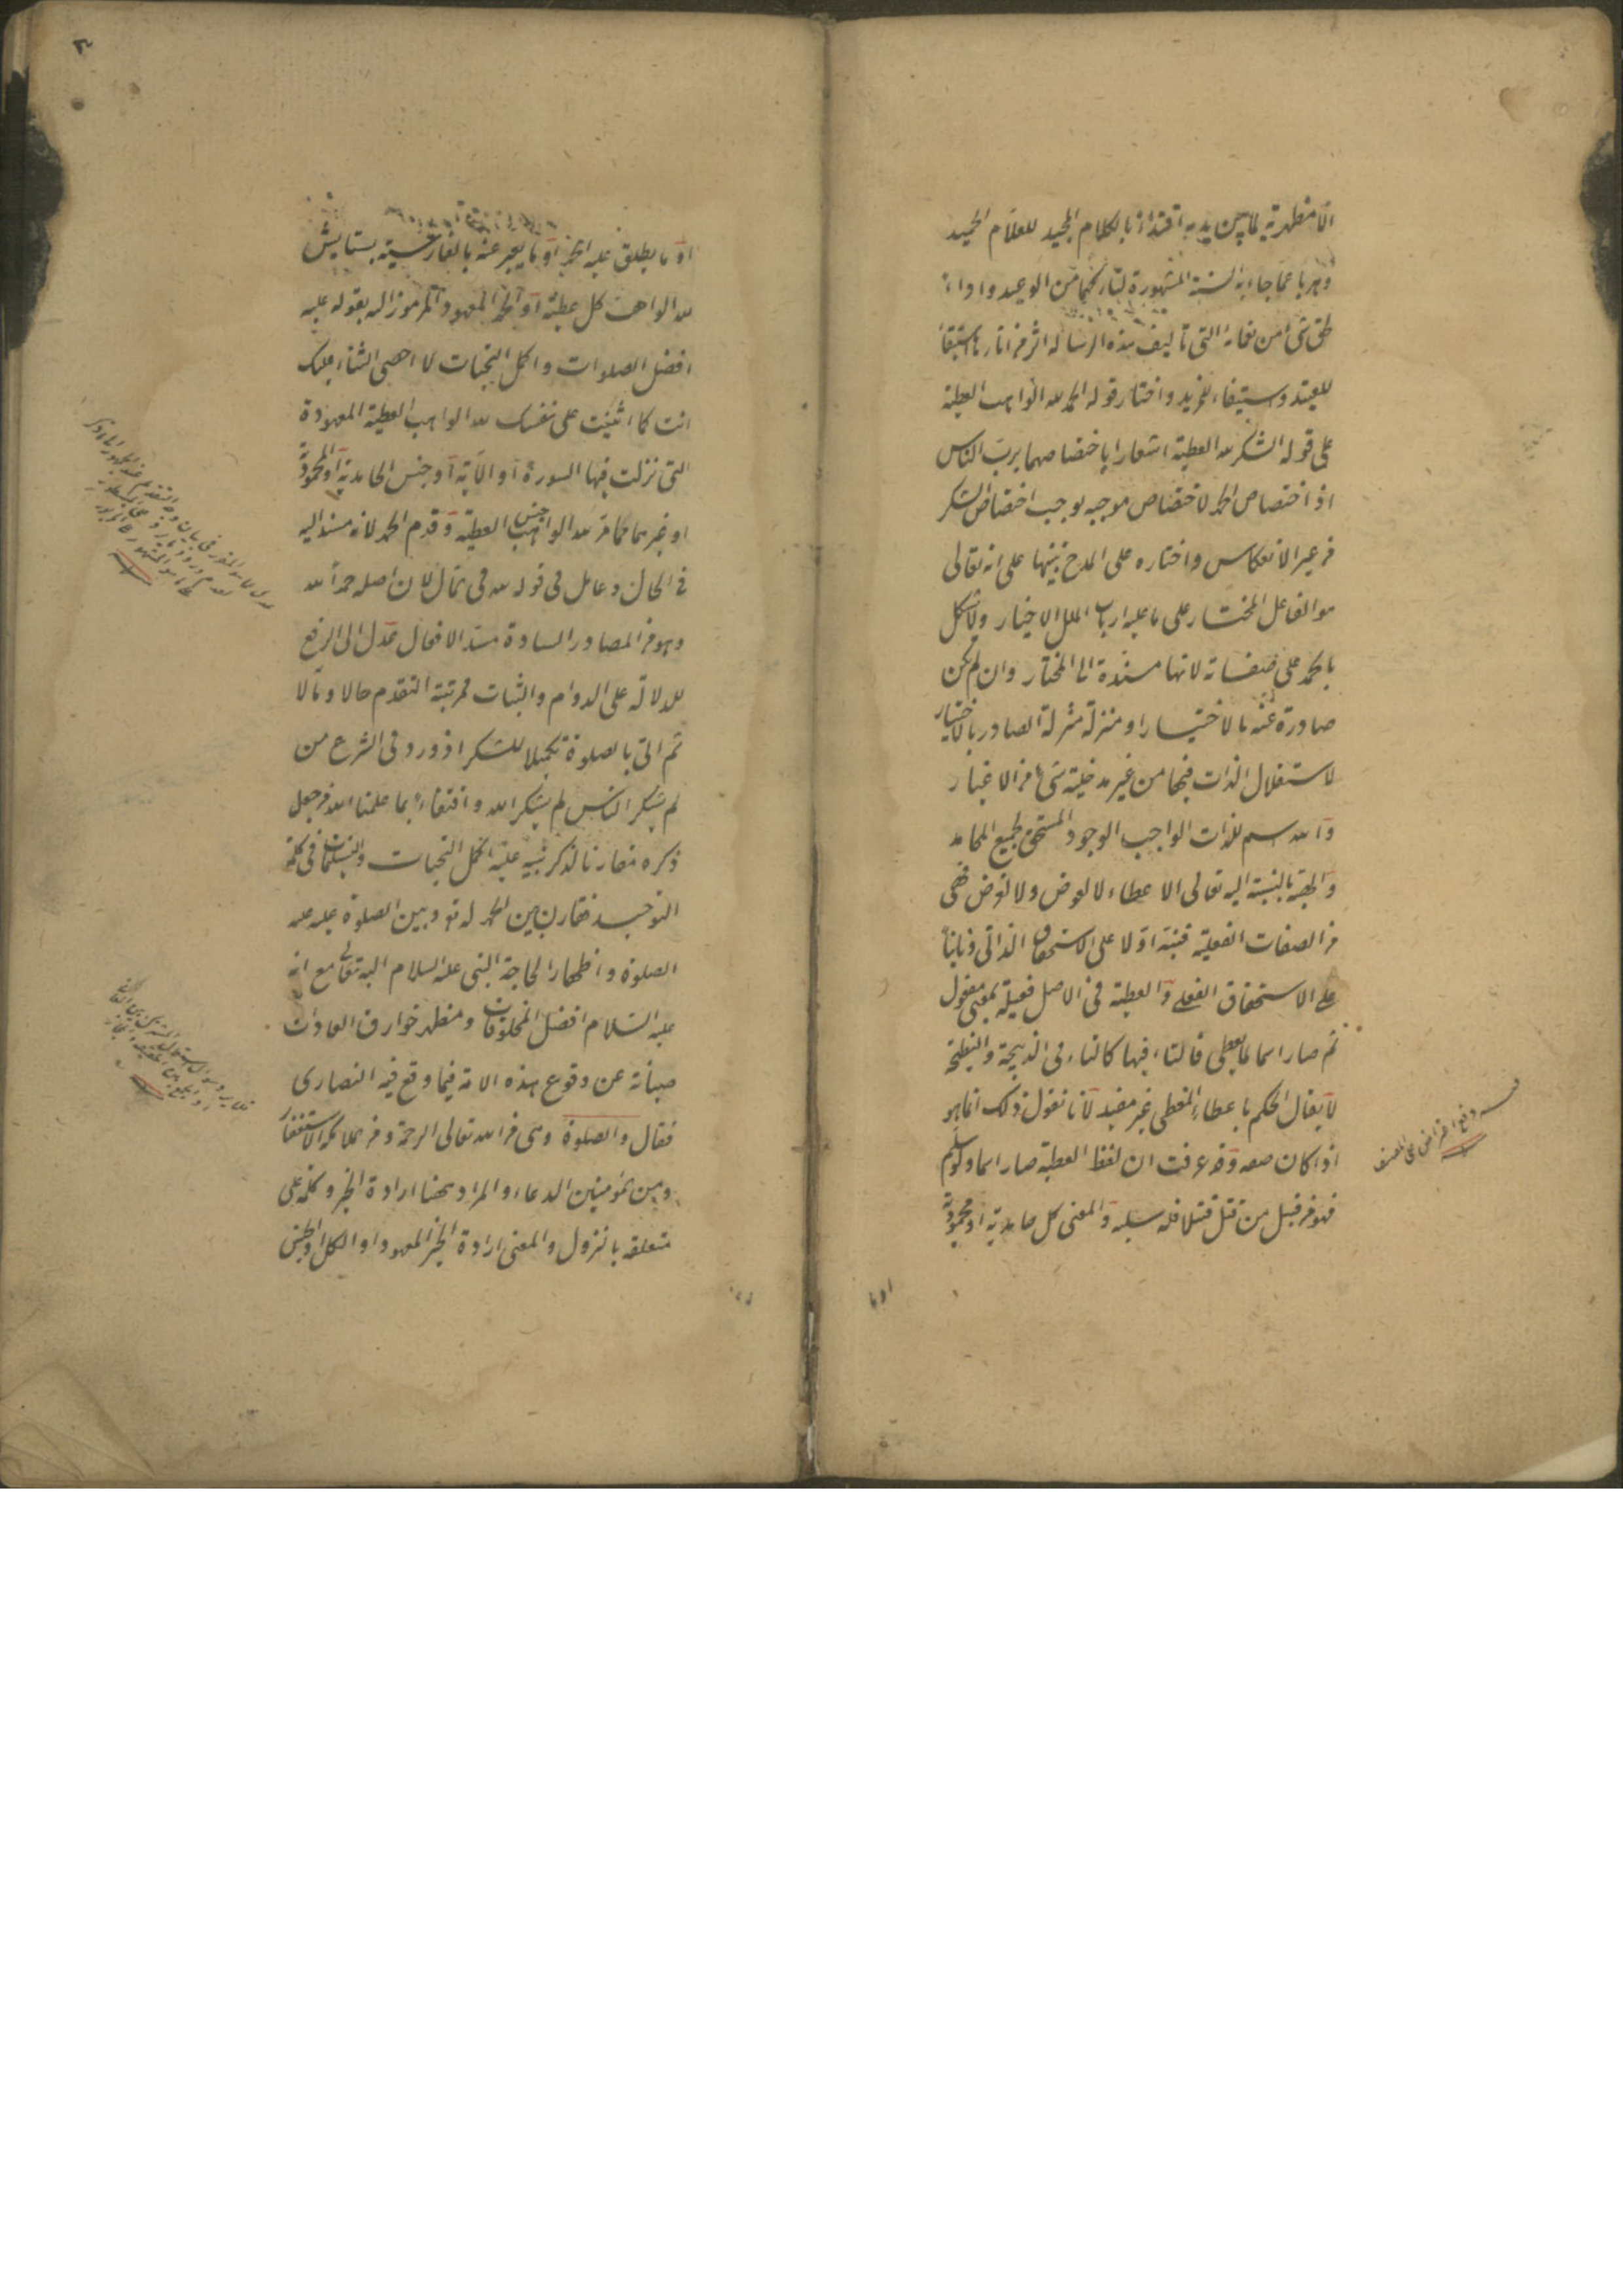 الا مظهرية لما بين يديه اقتداء بالكلام المجيد للعلام الحميد
وهربا عما جاء به السنة المشهورة لتاركهما من الوعيد واداء
حق شئ من نعمائه التى تأليف هذه الرسالة اثر من اثارها استبقاء
للعتيد واستيفاء للمزيد واختار قوله الحمد لله الواهب العطية
على قوله الشكر لله العطية اشعارا باختصاصهما برب الناس
اذ اختصاص الحمد لاختصاص موجبه يوجب اختصاص الشكر
من غير الانعكاس واختاره على المدح تنبيها على انه تعالى
هو الفاعل المختار على ما عليه ارباب الملل الاخيار ولا شكل
بالحمد على صفاته لانها مسندة الى المختار وان لم يكن
صادرة عنه بالاختيار او منزلة منزلة الصادر بالاختيار
لاستقلال الذات فيها من غير مدخلية شئ من الاغيار
والله اسم للذات الواجب الوجود المستحق لجميع المحامد
والهبة بالنسبة اليه تعالى الاعطاء لا لعوض ولا لغرض فهى
من الصفات الفعلية فنبه اولا على الاستحقاق الذاتى وثانيا
على الاستحقاق الفعلى والعطية فى الاصل فعيلة بمعنى مفعول
ثم صار اسما لما يعطى فالتاء فيها كالتاء فى الذبيحة والنطيحة
لا يقال الحكم باعطاء المعطى غير مفيد لانا نقول ذلك انما هو
اذا كان صفة وقد عرفت ان لفظ العطية صار اسما ولو سلم
فهو من قبيل من قتل قتيلا فله سلبه والمعنى كل حامدية او محمودية
دفع اعتراض على المصنف
او ما
او ما يطلق عليه الحمد او ما يعبر عنه بالفارسية بستايش
لله الواهب كل عطية او الحمد المعهود المرموز اليه بقوله عليه
افضل الصلوات واكمل التحيات لا احصى الثناء عليك
انت كما اثنيت على نفسك لله الواهب العطية المعهودة
التى نزلت فيها السورة او الآية او جنس الحامدية او المحمودية
او غيرهما مما مر لله الواهب جنس العطية وقدم الحمد لانه مسند اليه
فى الحال وعامل فى قوله لله فى المآل لان اصله حمدا لله
وهو من المصادر السادة مسد الافعال عدل الى الرفع
للدلالة على الدوام والثبات فمرتبته التقدم حالا ومآلا
ثم اتى بالصلوة تكميلا للشكر اذ ورد فى الشرع من
لم يشكر الناس لم يشكر الله واقتفاء بما علمنا الله من جعل
ذكره مقارنا لذكر نبيه عليه اكمل التحيات والتسليمات فى كلمة
التوحيد فقارن بين الحمد له تع وبين الصلوة عليه عليه
الصلوة واظهارا لحاجة النبى عليه السلام اليه تعالى مع انه
عليه السلام افضل المخلوقات ومظهر خوارق العادات
صيانة عن وقوع هذه الامة فيما وقع فيه النصارى
فقال والصلوة وهى من الله تعالى الرحمة ومن الملائكة الاستغفار
ومن المؤمنين الدعاء والمراد ههنا ارادة الخير وكلمة على
متعلقة بالنزول والمعنى ارادة الخير المعهود او الكل او الجنس